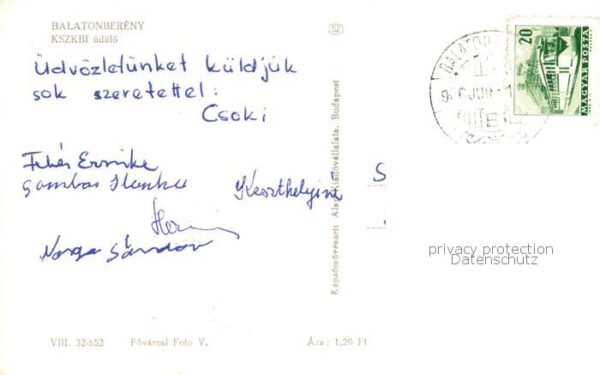 BALATONBERÉNY
KSZKBI üdülő
Üdvözletünket küldjük
sok szeretettel:
Csoki
Fehér Ernike
Gombos Ilonka
Keszthelyiné
Varga Sándor
S
Képzőművészeti Alap Kiadóvállalata, Budapest
20
MAGYAR POSTA
BALATON
privacy protection
Datenschutz
VIII. 32-852
Fővárosi Foto V.
Ára: 1,20 Ft